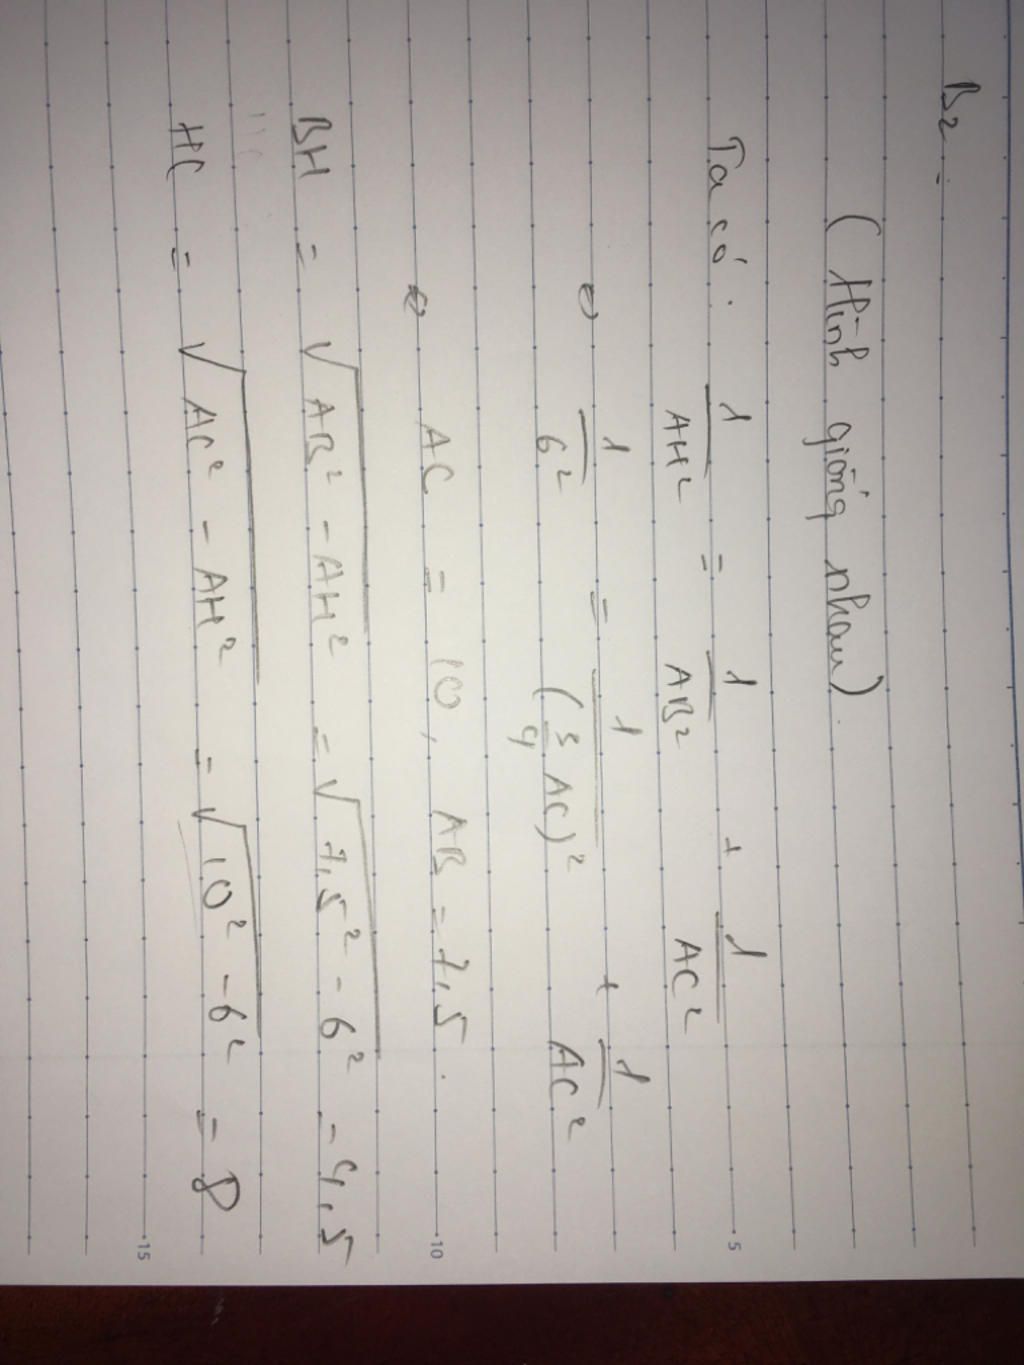 B2:
(Hình giống nhau).
Ta có: 1/AH² = 1/AB² + 1/AC²
⇔ 1/6² = 1/(3/4 AC)² + 1/AC²
⇔ AC = 10, AB = 7,5.
BH = √(AB² - AH²) = √(7,5² - 6²) = 4,5
HC = √(AC² - AH²) = √(10² - 6²) = 8
5
10
15